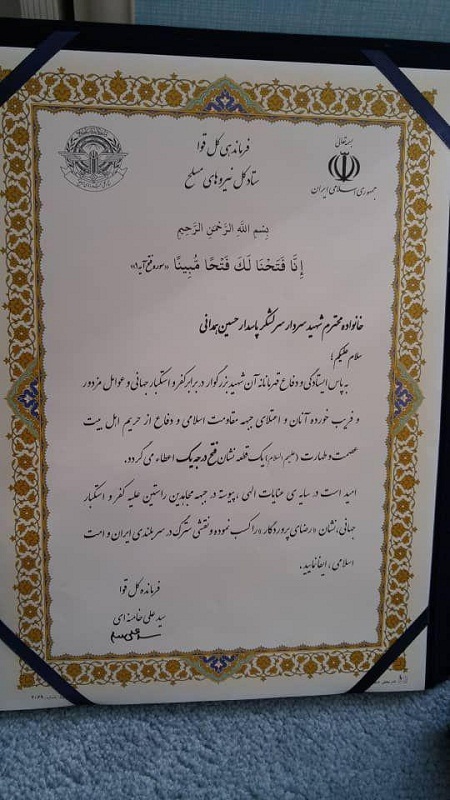 فرماندهی کل قوا
ستاد کل نیروهای مسلح
بسمه تعالی
جمهوری اسلامی ایران
بِسْمِ اللَّهِ الرَّحْمَنِ الرَّحِيمِ
إِنَّا فَتَحْنَا لَكَ فَتْحًا مُّبِينًا «سوره فتح آیه ۱»
خانواده محترم شهید سردار سرلشکر پاسدار حسین همدانی
سلام علیکم؛
به پاس ایستادگی و دفاع قهرمانانه آن شهید بزرگوار در برابر کفر و استکبار جهانی و عوامل مزدور
و فریب خورده آنان و اعتلای جبهه مقاومت اسلامی و دفاع از حریم اهل بیت
عصمت و طهارت (علیهم السلام) یک قطعه نشان فتح درجه یک اعطاء می گردد.
امید است در سایه ی عنایات الهی، پیوسته در جبهه مجاهدین راستین علیه کفر و استکبار
جهانی، نشان «رضای پروردگار» را کسب نموده و نقشی سترگ در سربلندی ایران و امت
اسلامی، ایفا نمایید.
فرمانده کل قوا
سید علی خامنه ای